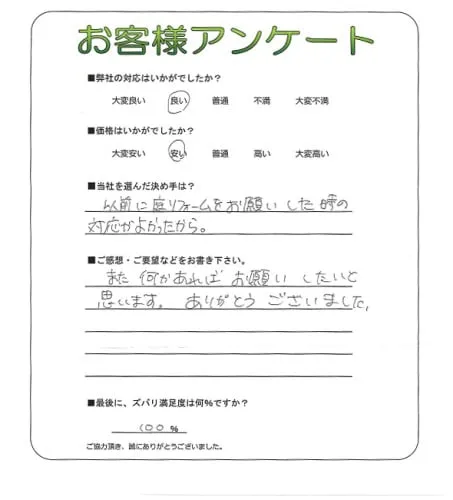 お客様アンケート
■弊社の対応はいかがでしたか?
大変良い 良い 普通 不満 大変不満
■価格はいかがでしたか?
大変安い 安い 普通 高い 大変高い
■当社を選んだ決め手は?
以前に庭リフォームをお願いした時の
対応がよかったから。
■ご感想・ご要望などをお書き下さい。
また何かあれば お願い したいと
思います。ありがとう ございました。
■最後に、ズバリ満足度は何%ですか?
100 %
ご協力頂き、誠にありがとうございました。